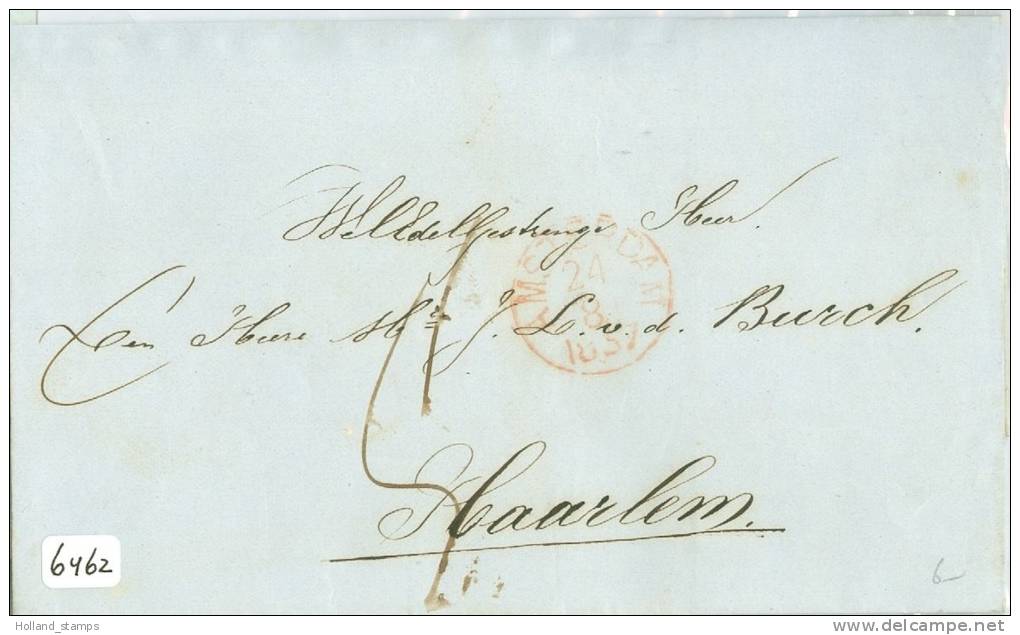 WelEdelGestrenge Heer
Den Heere Mr J. L. v. d. Burch.
Haarlem.
AMSTERDAM
24
8
1857
5
6462
6-
Holland_stamps
www.delcampe.net